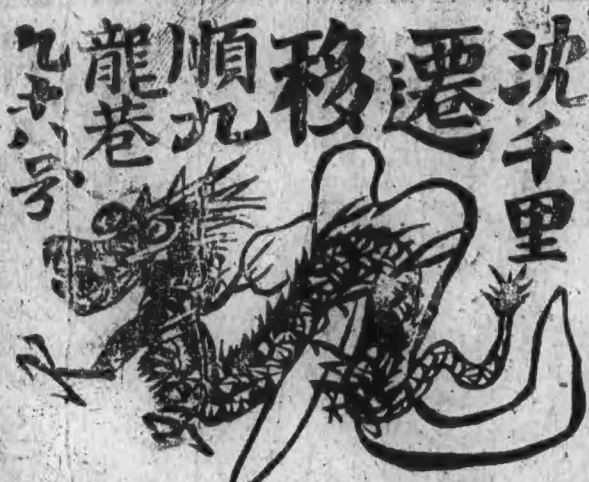 沈千里
遷移
順九
龍巷
九八号